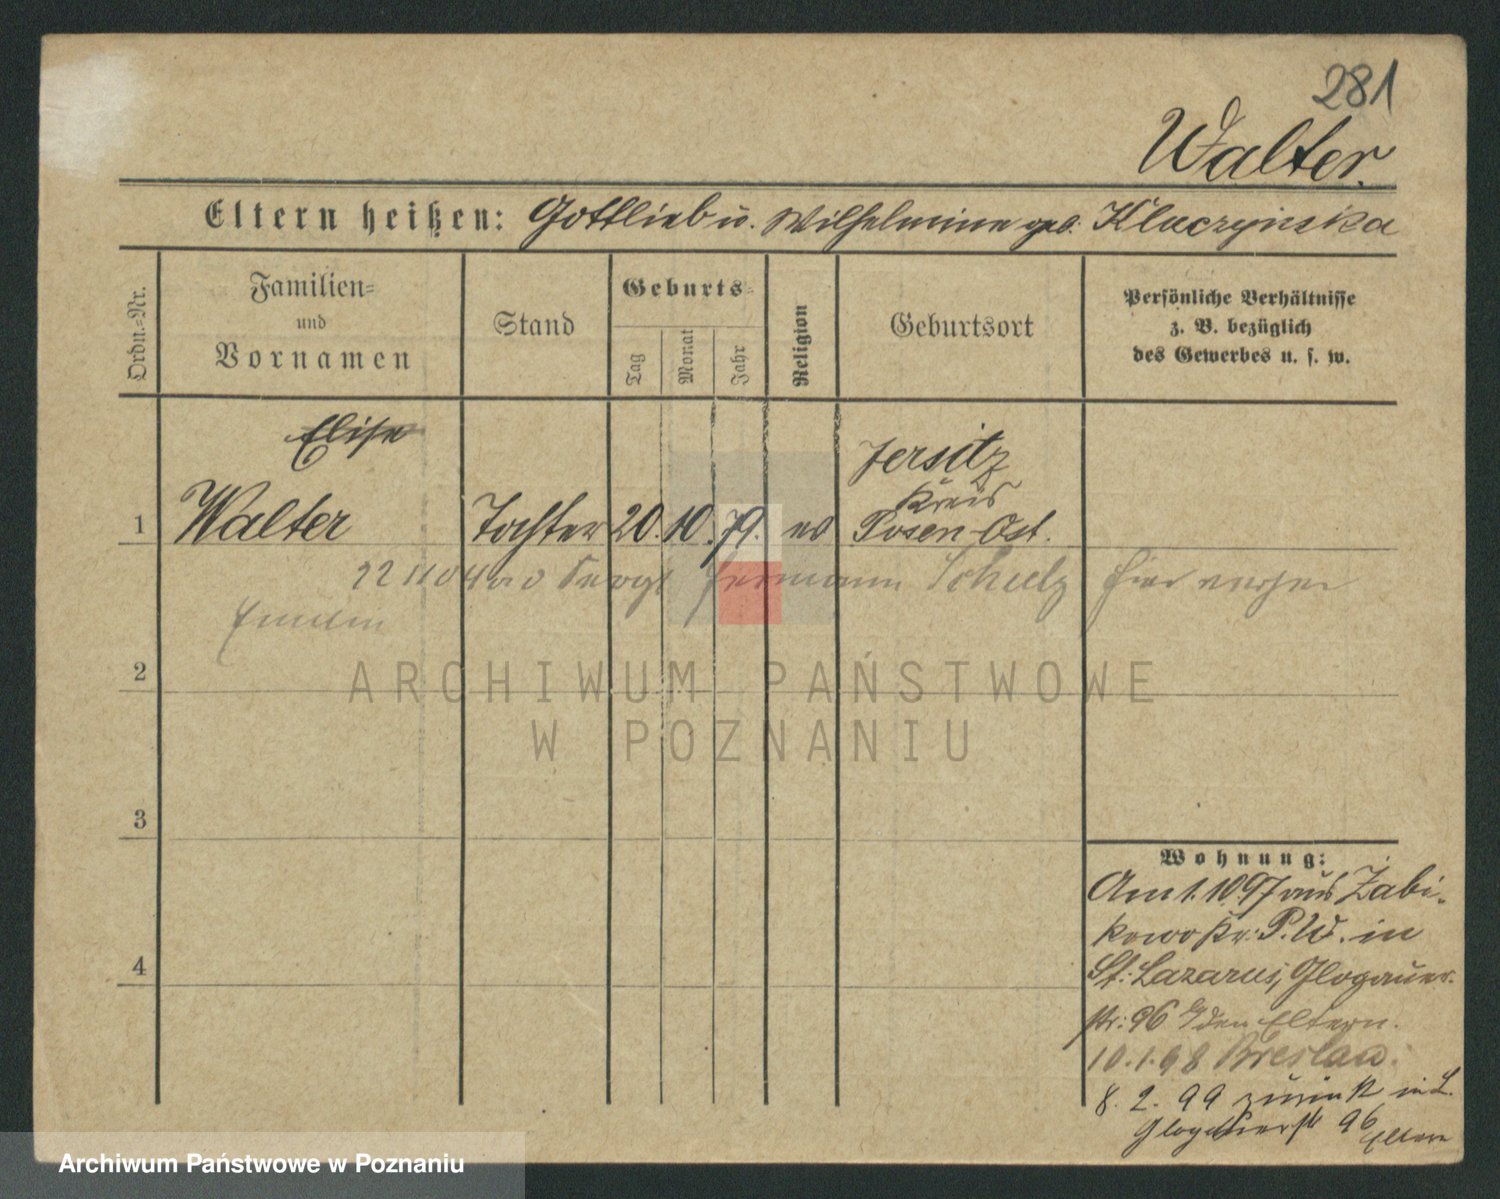 281
Walter.
Eltern heißen: Gottlieb u. Wilhelmine geb. Kluczynska
Ordn.-Nr.
Familien-
und
Vornamen
Stand
Geburts-
Tag
Monat
Jahr
Religion
Geburtsort
Persönliche Verhältnisse
z. B. bezüglich
des Gewerbes u. s. w.
Elise
1 Walter Tochter 20. 10. 79. ev Jersitz
Kreis
Posen-Ost.
Hermann Schulz hier
2
ARCHIWUM PAŃSTWOWE
W POZNANIU
3
4
Wohnung:
Am 1.10.97 aus Żabi-
kowo Kr: P.W. in
St: Lazarus, Glogauer-
str: 96 b/ den Eltern.
10.1.98 Breslau.
8. 2. 99 zurück in L.
Glogauerstr 96
Eltern
Archiwum Państwowe w Poznaniu